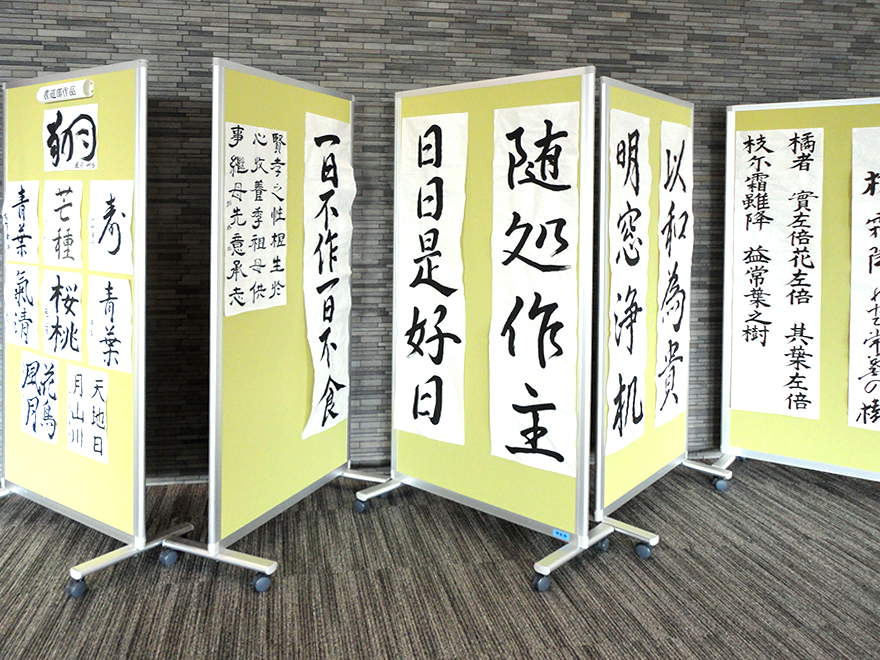 書道部作品
翔
寿
芒種
青葉
青葉
桜桃
氣清
花鳥
風月
天地日
月山川
一日不作一日不食
賢孝之性根生於
心收養季祖母供
事継母先意承志
随処作主
日日是好日
以和為貴
明窓浄机
橘者 實左倍花左倍 其葉左倍
枝尓霜雖降 益常葉之樹